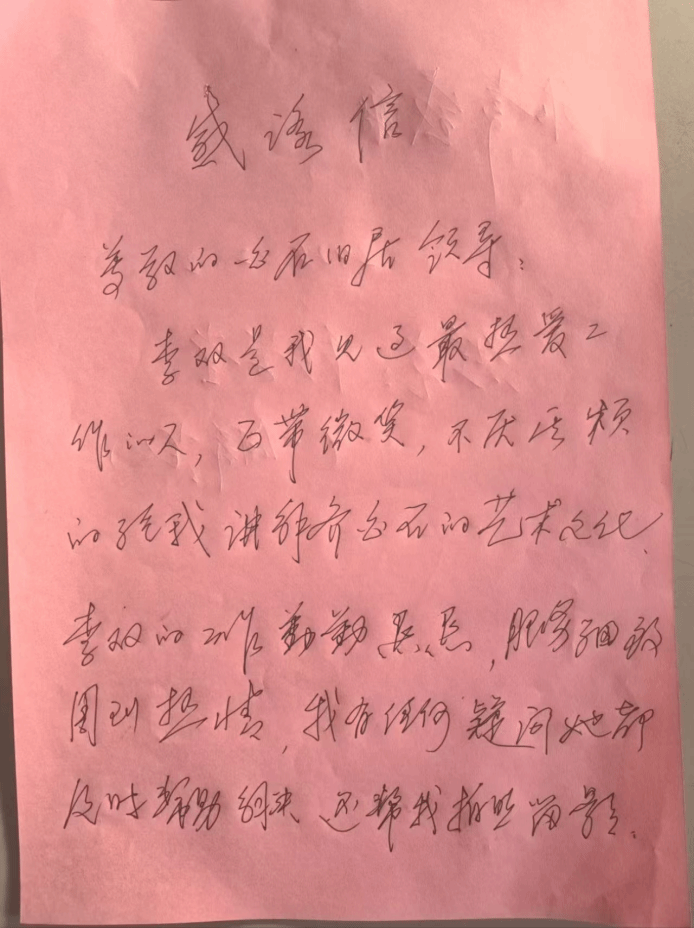 感谢信
尊敬的白石旧居领导：
李双是我见过最热爱工
作的人，面带微笑，不厌其烦
的给我讲解齐白石的艺术文化、
李双的工作勤勤恳恳，服务细致
周到热情，我有任何疑问她都
及时帮助解决 还帮我拍照留影。